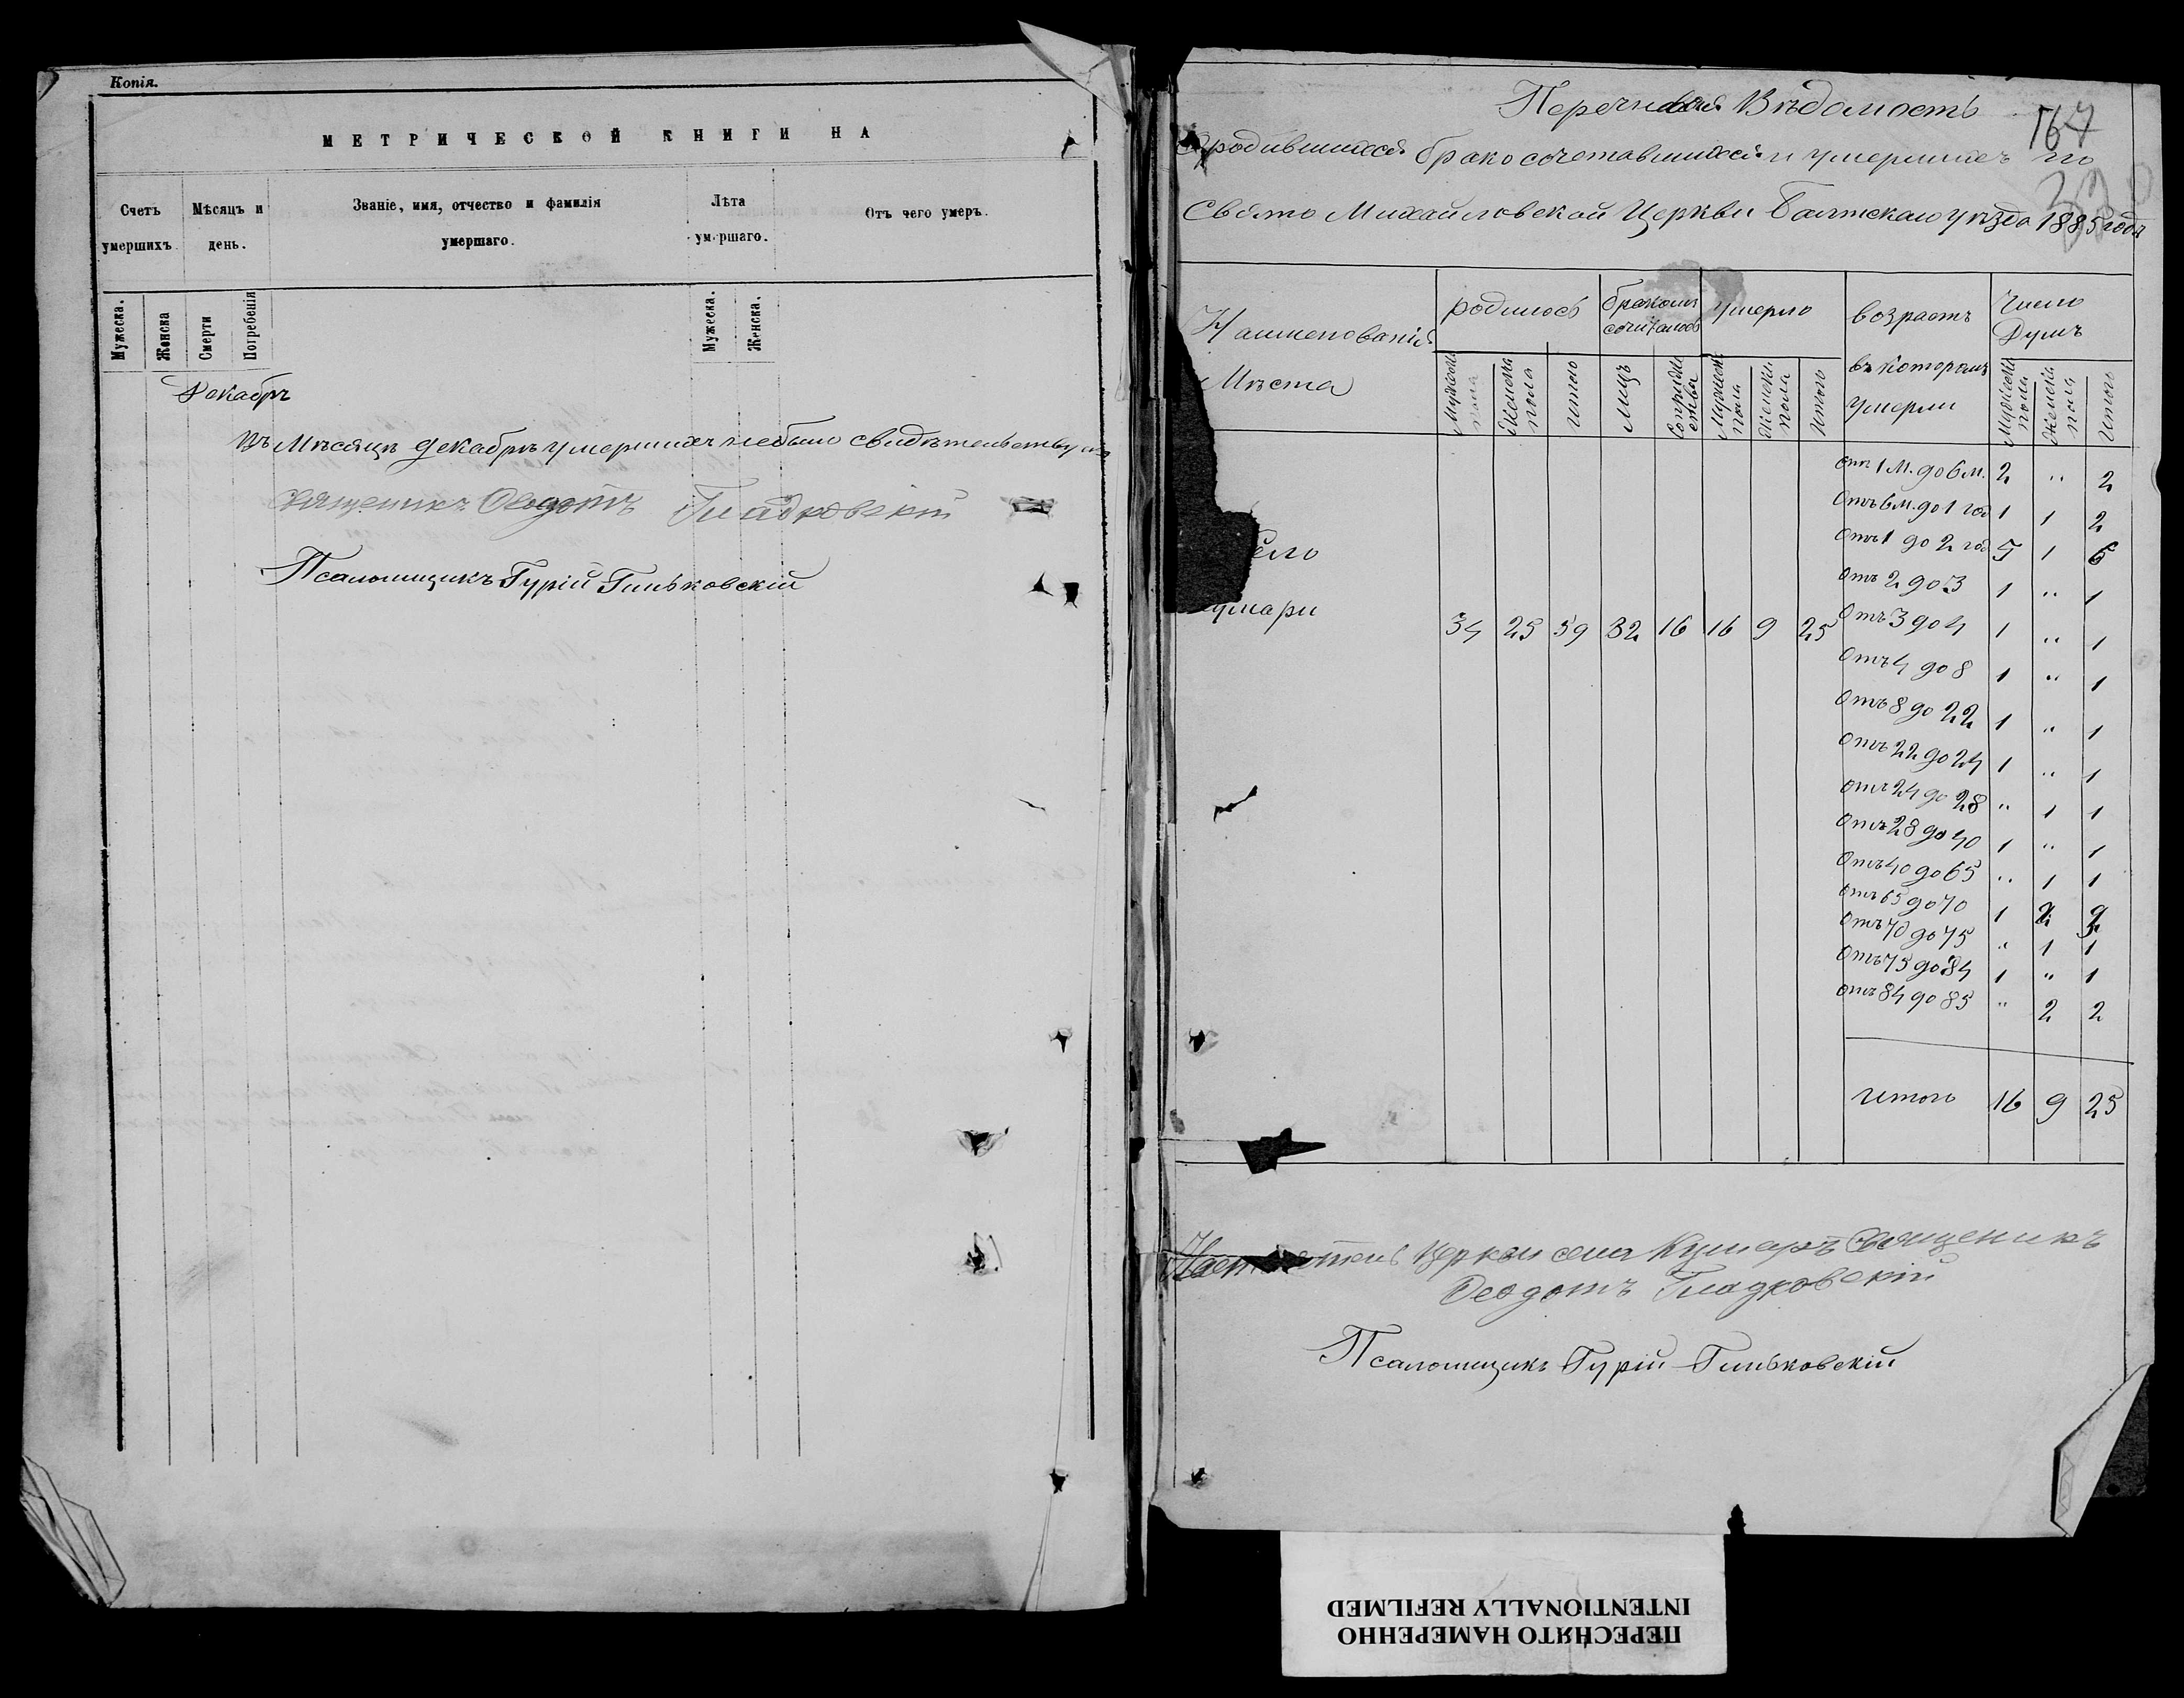 Копія.
МЕТРИЧЕСКОЙ КНИГИ НА
Счетъ умершихъ.
Мѣсяцъ и день.
Званіе, имя, отчество и фамилія умершаго.
Лѣта ум ршаго.
Отъ чего умеръ.
Мужеска.
Женска
Смерти
Погребенія
Мужеска.
Женска.
Декабрь
Въ Мѣсяцѣ декабрѣ умершихъ небыло свидѣтельствуемъ
Священикъ Ѳеодотъ Гладковскій
Псаломщикъ Гурій Гиньковскій
Перечневая Вѣдомость
родившихся бракосочетавшихся и умершихъ по
Свято Михайловской Церкви Балтскаго уѣзда 1885 годъ
167
Наименованія Мѣста
родилось
бракомъ сочиталось
умерло
возрастъ въ которомъ умерли
Число Душъ
Мужеска пола
Женска пола
Итого
Лицъ
Супружества
Мужеска пола
Женска пола
Итого
Мужеска пола
Женска пола
Итого
ело
умари 34 25 59 32 16 16 9 25
Отъ 1 М. до 6 м. 2 " 2
Отъ 6 м. до 1 год 1 1 2
Отъ 1 до 2 год 5 1 6
Отъ 2 до 3 1 " 1
Отъ 3 до 4 1 " 1
Отъ 4 до 8 1 " 1
Отъ 8 до 22 1 " 1
Отъ 22 до 24 1 " 1
Отъ 24 до 28 " 1 1
Отъ 28 до 40 1 " 1
Отъ 40 до 65 " 1 1
Отъ 65 до 70 1 2 3
Отъ 70 до 75 " 1 1
Отъ 75 до 84 1 " 1
Отъ 84 до 85 " 2 2
Итого 16 9 25
Наст тель Церкви села Кумаръ Священикъ
Ѳеодотъ Гладковскій
Псаломщикъ Гурій Гиньковскій
ПЕРЕСНЯТО НАМЕРЕННО
INTENTIONALLY REFILMED